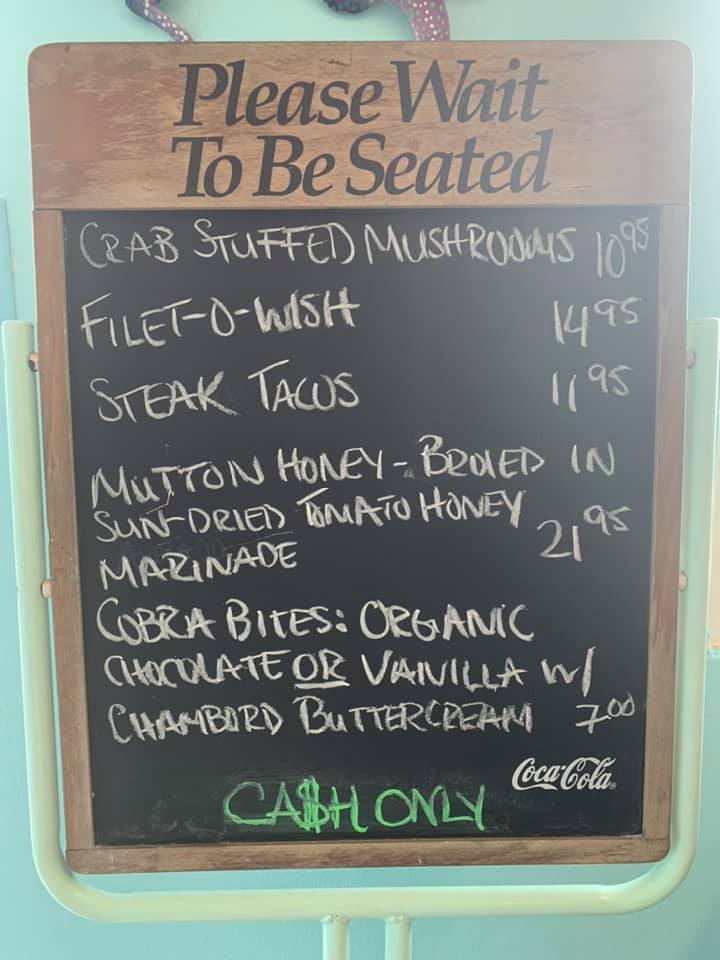 Please Wait
To Be Seated
CRAB STUFFED MUSHROOMS 10 95
FILET-O-WISH 14 95
STEAK TACOS 11 95
MUTTON HONEY - BROILED IN
SUN-DRIED TOMATO HONEY
MARINADE 21 95
COBRA BITES: ORGANIC
CHOCOLATE OR VANILLA W/
CHAMBORD BUTTERCREAM 7.00
Coca-Cola
CA$H ONLY